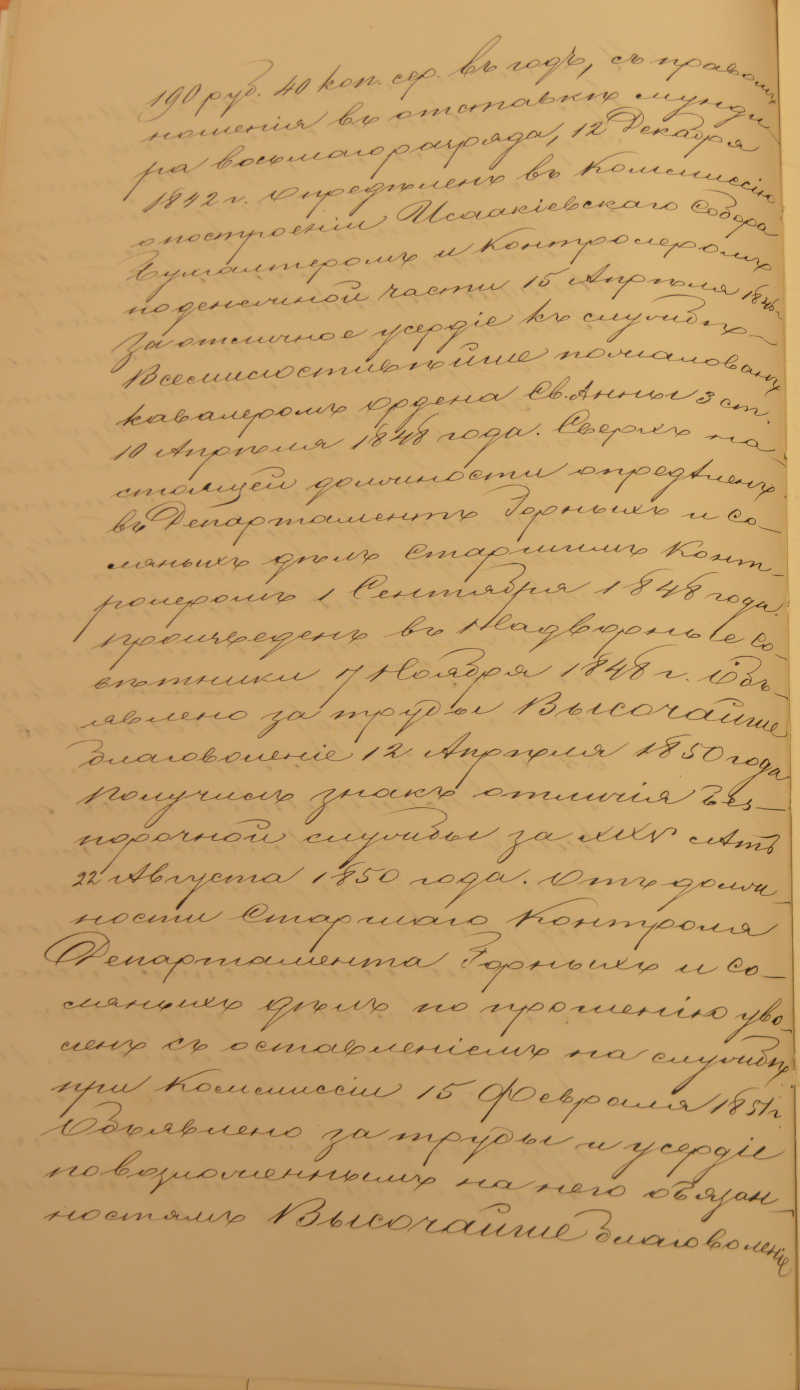 190 руб. 40 коп. сер. въ годъ, съ правомъ
ношенія въ отставкѣ мунди-
ра восьмаго разряда, 12 Декабря
1842 г. Опредѣленъ въ Коммиссію
о построеніи Исаакіевскаго Собора
Бухгалтеромъ и Контролеромъ
по денежной части 15 Апрѣля 1846 г.
За отличное усердіе къ службѣ
Всемилостивѣйше пожалованъ
кавалеромъ Ордена Св. Анны 3 ст.
10 Апрѣля 1848 года. Сверхъ на-
стоящей должности опредѣленъ
въ Департаментъ Горныхъ и Со-
ляныхъ дѣлъ Старшимъ Конт-
ролеромъ 1 Сентября 1848 года.
Произведенъ въ Надворные Со-
вѣтники 7 Ноября 1848 г. Объ-
явлено за труды Высочайшее
благоволеніе 12 Апрѣля 1850 года
Получилъ знакъ отличія без-
порочной службы за XXV лѣтъ
22 Августа 1850 года. Отъ долж-
ности Старшаго Контроля
Департамента Горныхъ и Со-
ляныхъ дѣлъ по прошенію уво-
ленъ съ оставленіемъ на службѣ
при Коммиссіи 15 Февраля 1851 г.
Объявлено за труды и усердіе
по возложеннымъ на него обязан-
ностямъ Высочайшее благоволеніе